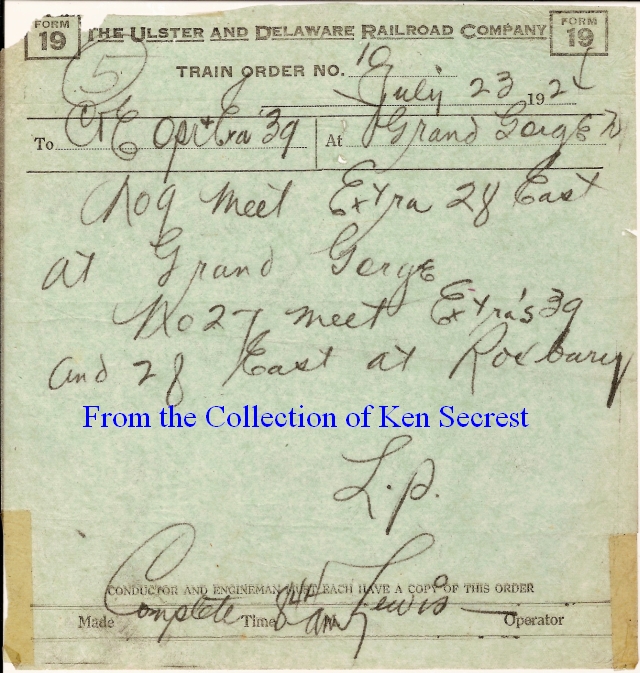 FORM 19
THE ULSTER AND DELAWARE RAILROAD COMPANY
FORM 19
5
TRAIN ORDER NO. 10
July 23 192
To C+E Opr + Exa 39 At Grand Gorge
No 9 meet Extra 28 East
at Grand Gorge
No 27 meet Extra's 39
and 28 East at Roxbury
From the Collection of Ken Secrest
L.P.
CONDUCTOR AND ENGINEMAN MUST EACH HAVE A COPY OF THIS ORDER
Made Complete Time am Lewis Operator